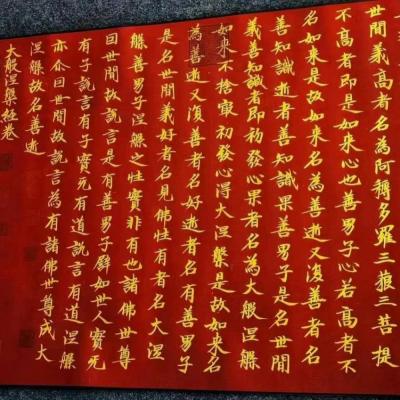 世間義高者名為阿耨多羅三藐三菩提
不高者即是如來心也善男子心若高者不
名如來是故如來名為善逝又復善者名
善知識逝者善知識果善男子是名世間
義善知識者即初發心果者名為大般涅槃
如來不捨冣初發心得大涅槃是故如來名
為善逝又復善者名好逝者名有善男子
是名世間義好者名見佛性有者名大涅
槃善男子涅槃之性實非有也諸佛世尊
因世間故說言是有善男子譬如世人實无
有子說言有子實无有道說言有道涅槃
亦尒因世間故說言為有諸佛世尊成大
涅槃故名善逝
大般涅槃經卷